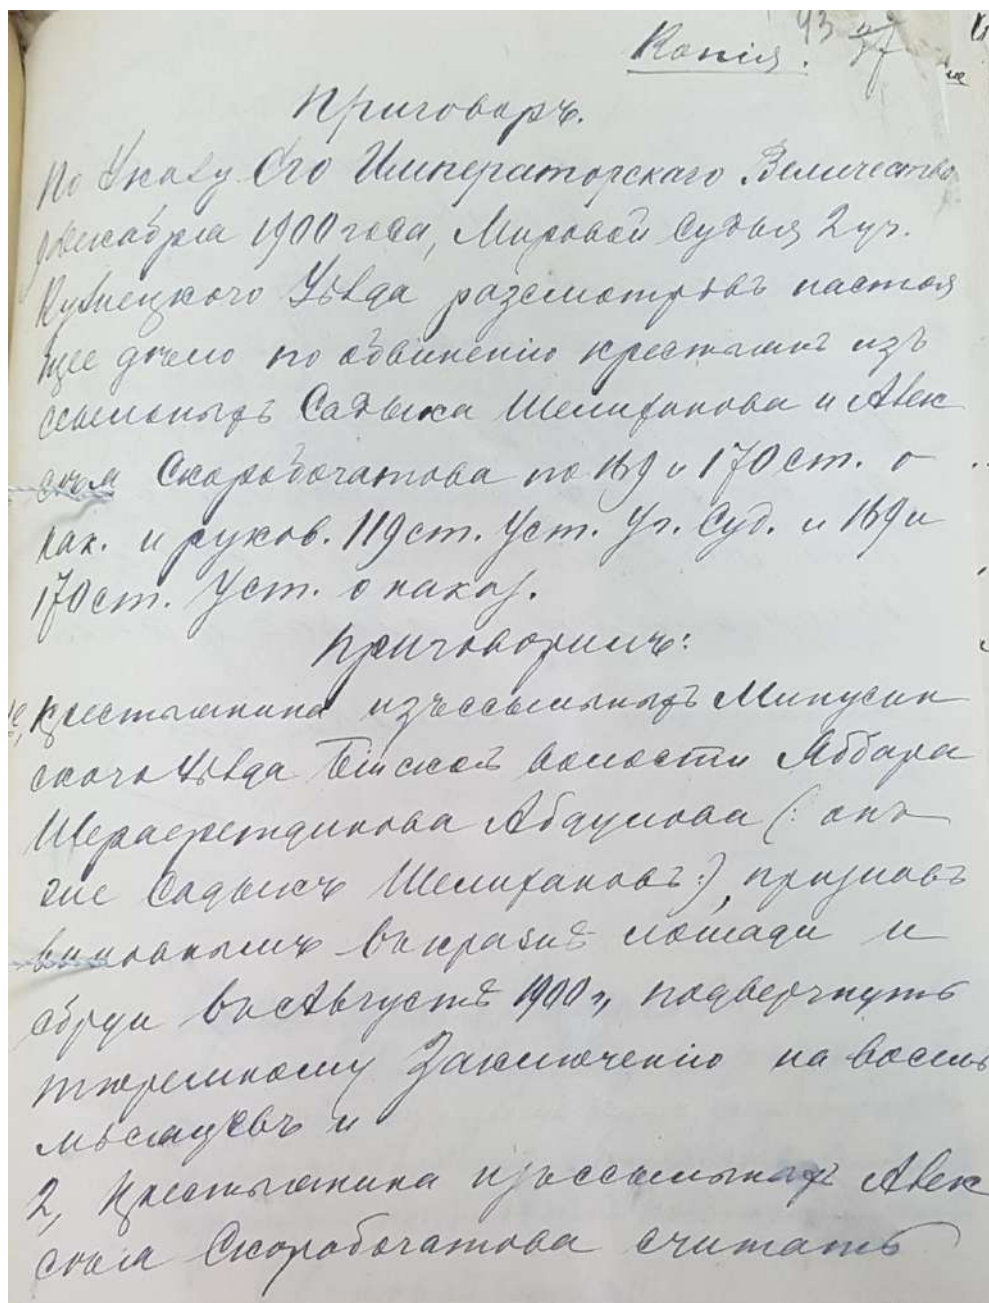 Копія. 43 37
Приговоръ.
По Указу Его Императорскаго Величества
декабря 1900 года, Мировой Судья 2 уч.
Кузнецкого Уѣзда разсмотрѣвъ настоя
щее дѣло по обвиненію крестьянъ изъ
ссыльныхъ Садыка Шелиханова и Алек
Скоробогатова по 169 и 170 ст. о
нак. и руков. 119 ст. Уст. Уг. Суд. и 169 и
170 ст. Уст. о наказ.
Приговорилъ:
Крестьянина изъ ссыльныхъ Минусин
скаго Уѣзда Бейской волости Яббара
Шерафетдинова Абдулова (: онъ
же Садыкъ Шелихановъ:), признавъ
виновнымъ въ кражѣ лошади и
сбруи въ Августѣ 1900 г., подвергнуть
тюремному Заключенію на восемь
мѣсяцевъ и
2, Крестьянина изъ ссыльныхъ Алек
Скоробогатова считать